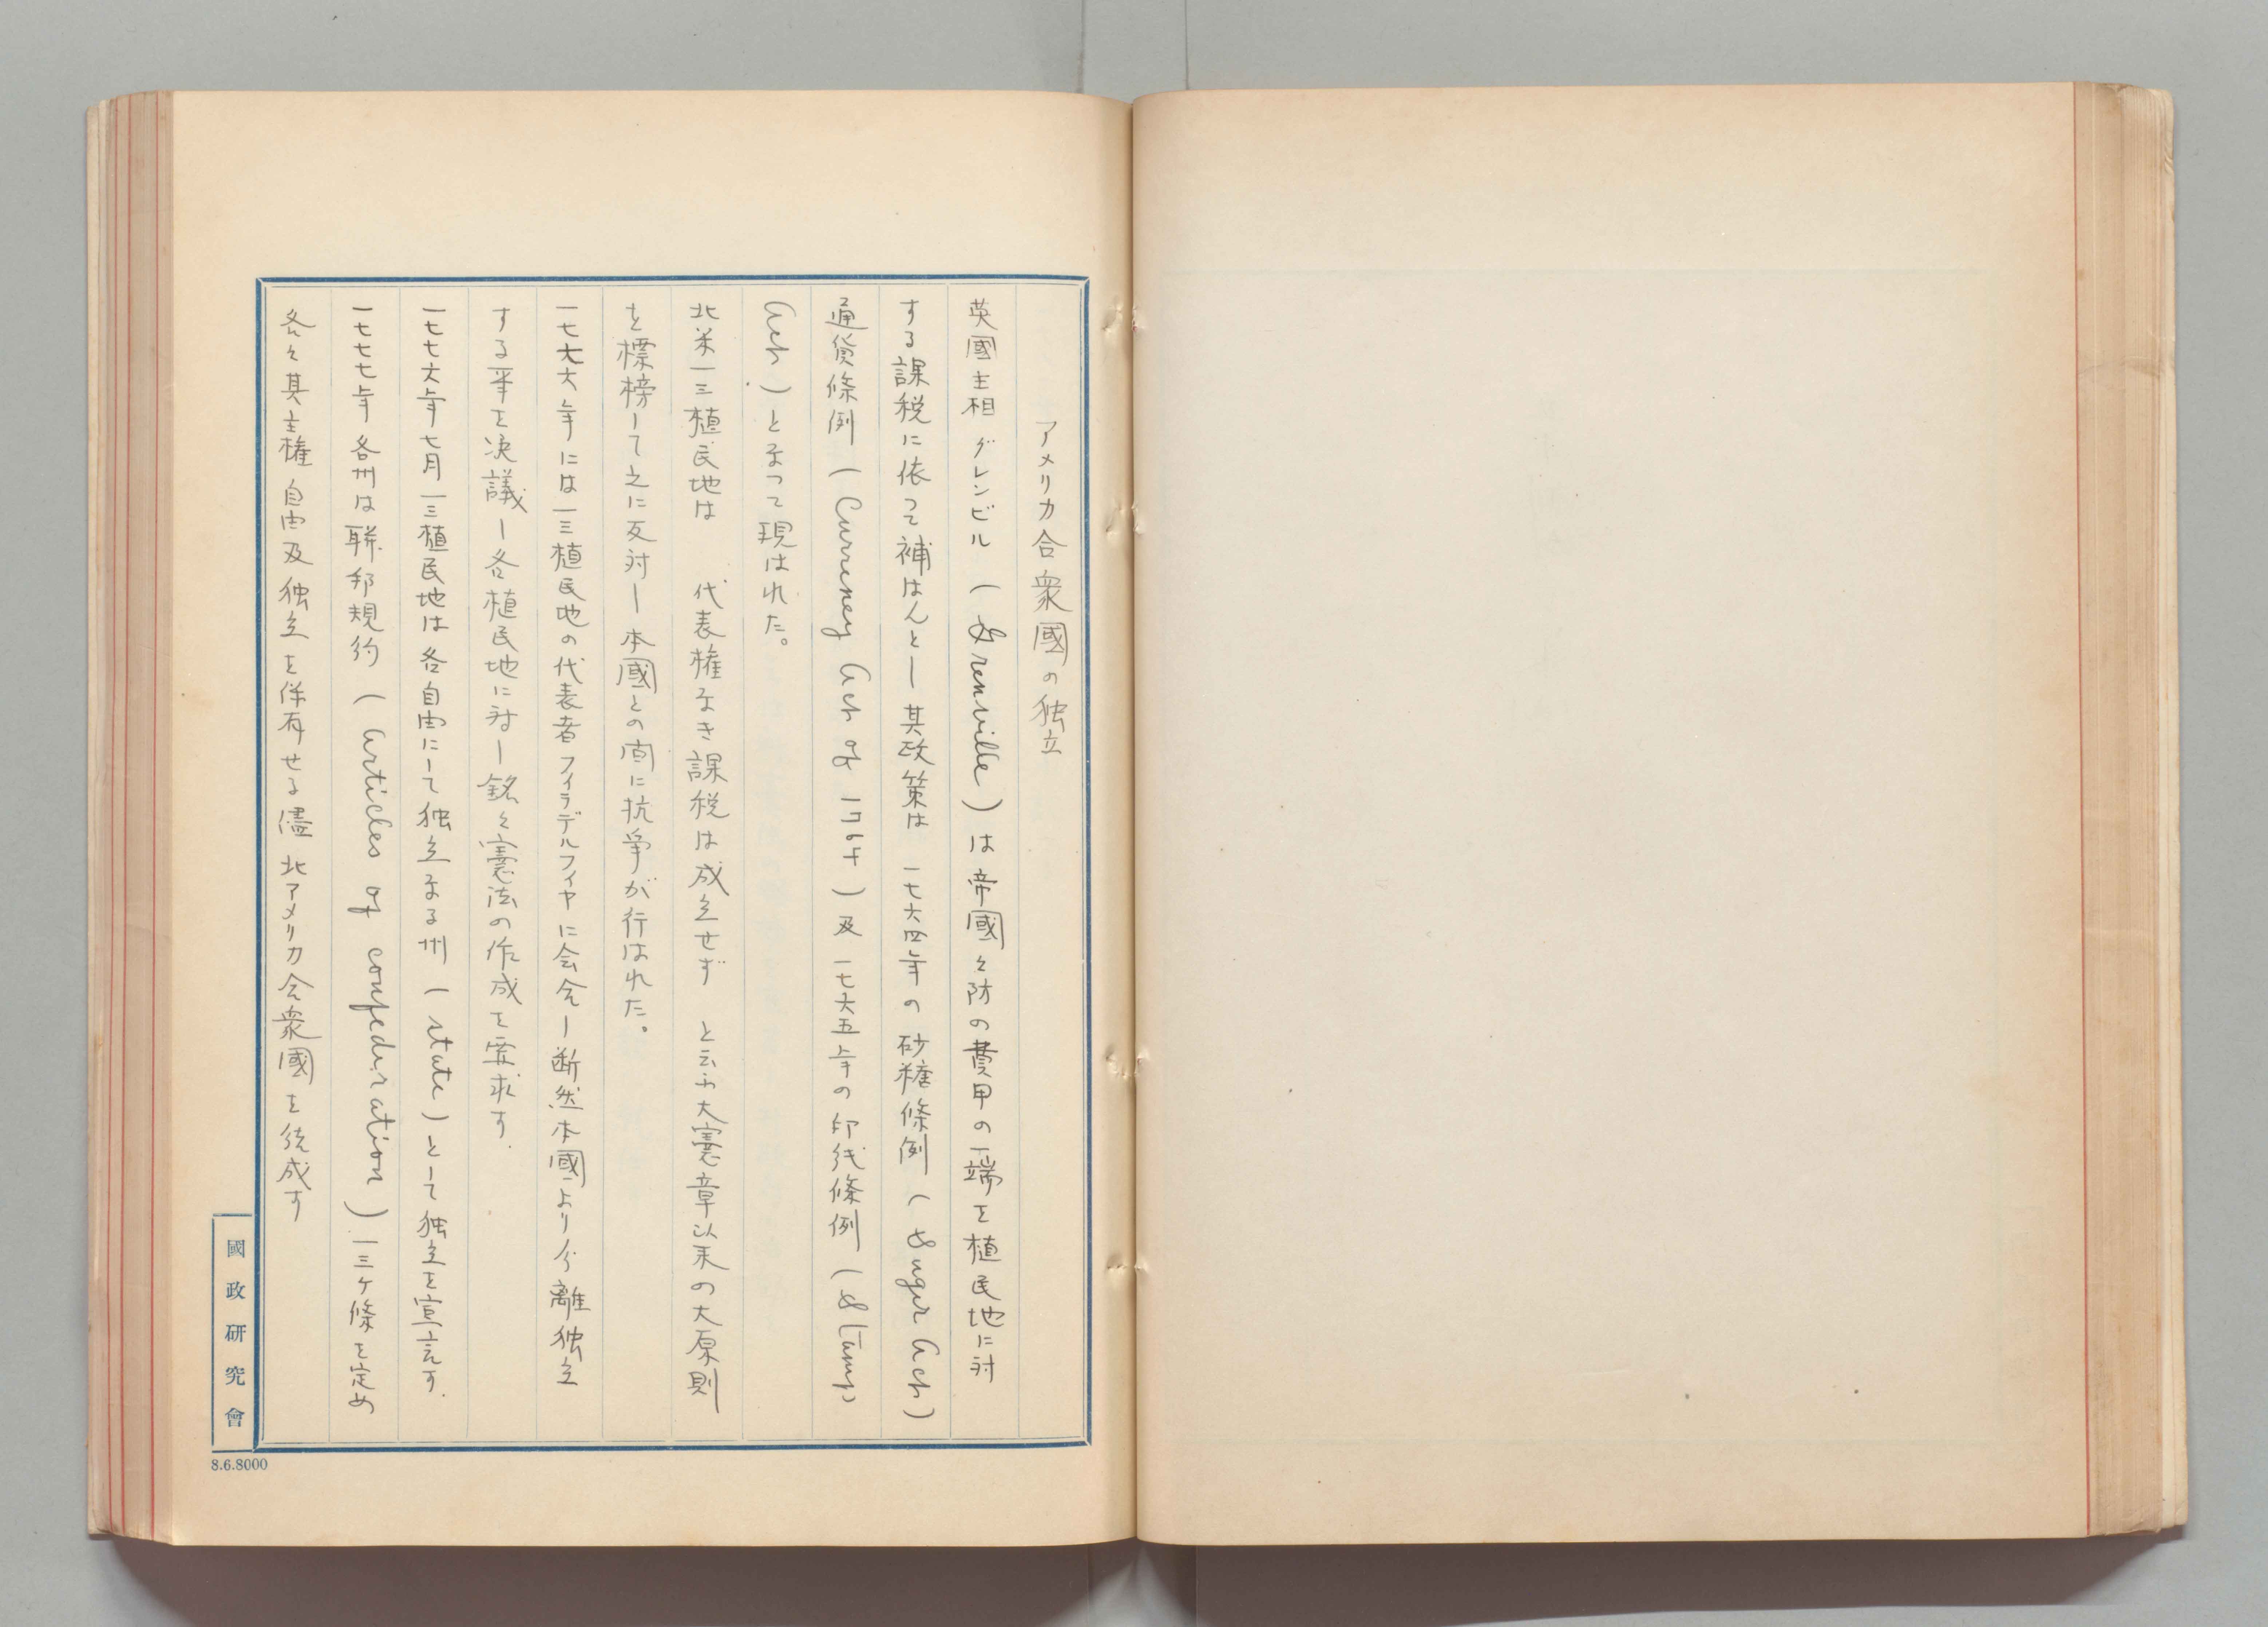 アメリカ合衆國の独立
英國主相グレンビル(Grenville)は帝國々防の費用の一端を植民地に対
する課税に依って補はんとし其政策は一七六四年の砂糖條例(Suger Act)
通貨條例(Curreney Act of 1764)及一七六五年の印紙條例(Stamp
Act)となって現はれた。
北米一三植民地は 代表権なき課税は成立せず と云ふ大憲章以来の大原則
を標榜して之に反対し本國との間に抗争が行はれた。
一七七六年には一三植民地の代表者フィラデルフィヤに会合し断然本國より分離独立
する事を決議し各植民地に対し銘々憲法の作成を要求す.
一七七六年七月一三植民地は各自由にして独立なる州(state)として独立を宣言す.
一七七七年各州は聯邦規約(Articles of confederation)一三ヶ條を定め
各々其主権自由及独立を保有せる儘北アメリカ合衆國を結成す
國政研究會
8.6.8000